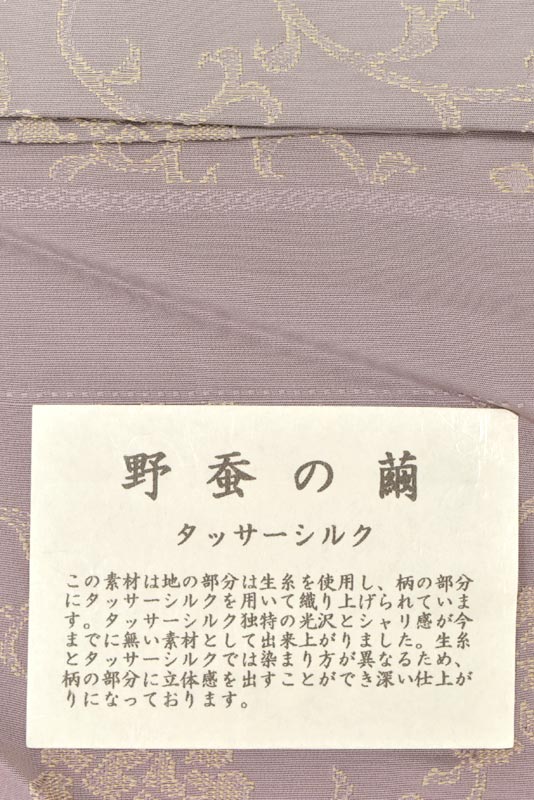 野蚕の繭
タッサーシルク
この素材は地の部分は生糸を使用し、柄の部分
にタッサーシルクを用いて織り上げられていま
す。タッサーシルク独特の光沢とシャリ感が今
までに無い素材として出来上がりました。生糸
とタッサーシルクでは染まり方が異なるため、
柄の部分に立体感を出すことができ深い仕上が
りになっております。